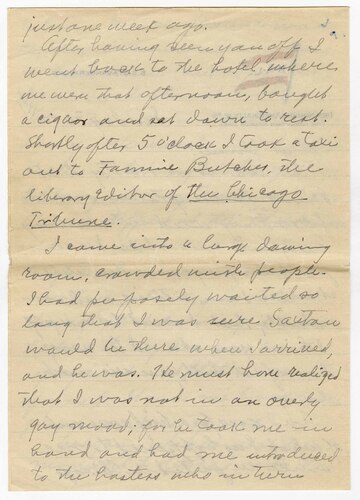 just one week ago.
After having seen you off I
went back to the hotel where
we were that afternoon, bought
a cigar and sat down to rest.
Shortly after 5 o'clock I took a taxi
out to Fannie Butcher, the
literary Editor of the Chicago
Tribune.
I came into a large dawing
room, crowded with people.
I had purposely waited so
long that I was sure
would be there when I arrived,
and he was. He must have realized
that I was not in an overly
gay mood; for he took me in
hand and had me introduced
to the hostess who in turn